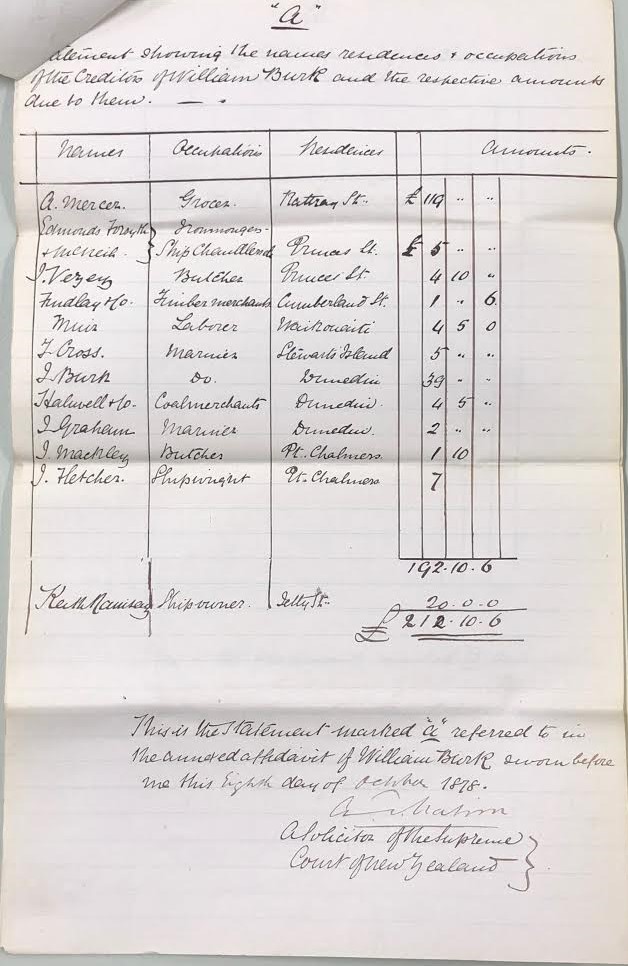 "A"
atement showing the names residences & occupations
of the Creditors of William Burk and the respective amounts
due to them.
Names Occupations Residences Amounts.
A. Mercer. Grocer. Rattray St. £ 119 " "
Edmonds Forsyth Ironmonger
& McNeil. } Ship Chandlers Princes St. £ 5 " "
J. Vezey Butcher Princes St. 4 10 "
Findlay & Co. Timber merchants Cumberland St. 1 " 6
Muir Laborer Waikouaiti 4 5 0
J. Cross. Mariner Stewarts Island 5 " "
J. Burk Do. Dunedin 39 " "
Halwell & Co. Coalmerchants Dunedin 4 5 "
J Graham Mariner Dunedin. 2 " "
J. Mackley Butcher Pt. Chalmers 1 10
J. Fletcher. Shipwright Pt. Chalmers 7
192.10.6
Keith Ramsay Shipowner. Jetty St. 20.0.0
£ 212.10.6
This is the Statement marked "a" referred to in
the annexed affidavit of William Burk sworn before
me this Eighth day of October 1878.
A Solicitor of the Supreme
Court of New Zealand }